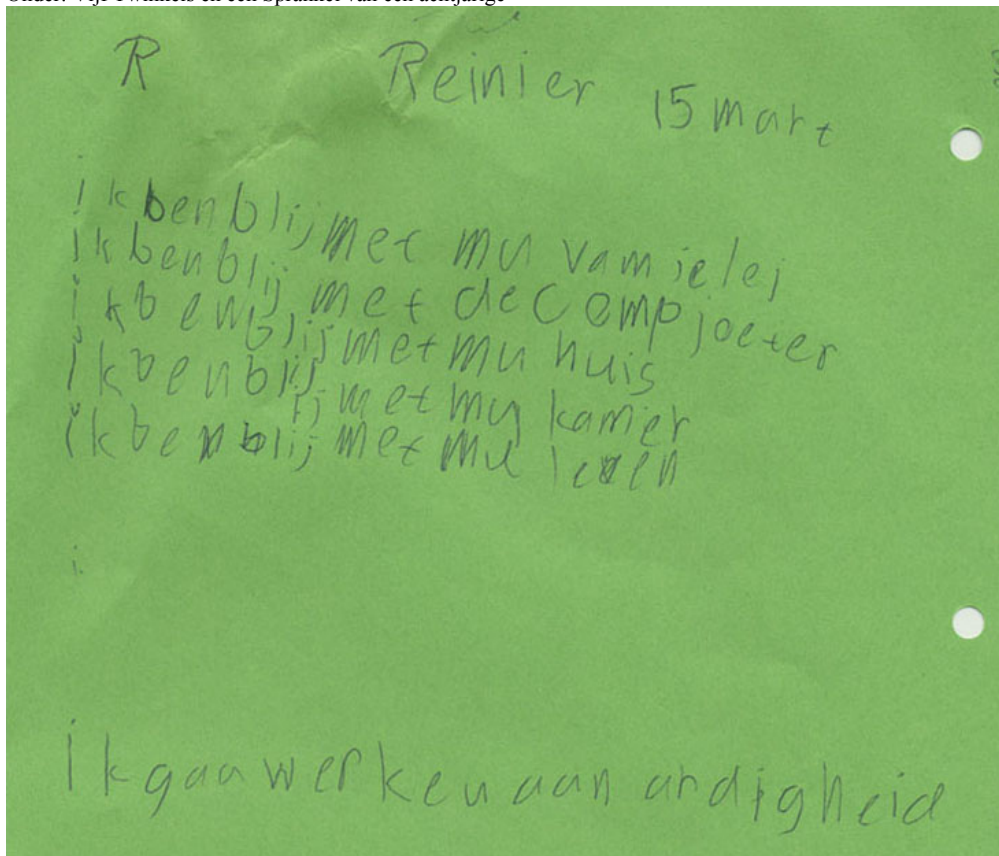 R Reinier 15 mart
ik ben blij met mu vamielej
ik ben blij met de compjoeter
ik ben blij met mu huis
ik ben blij met my kamer
ik ben blij met mu leven
i
ik gaa werken aan ardigheid